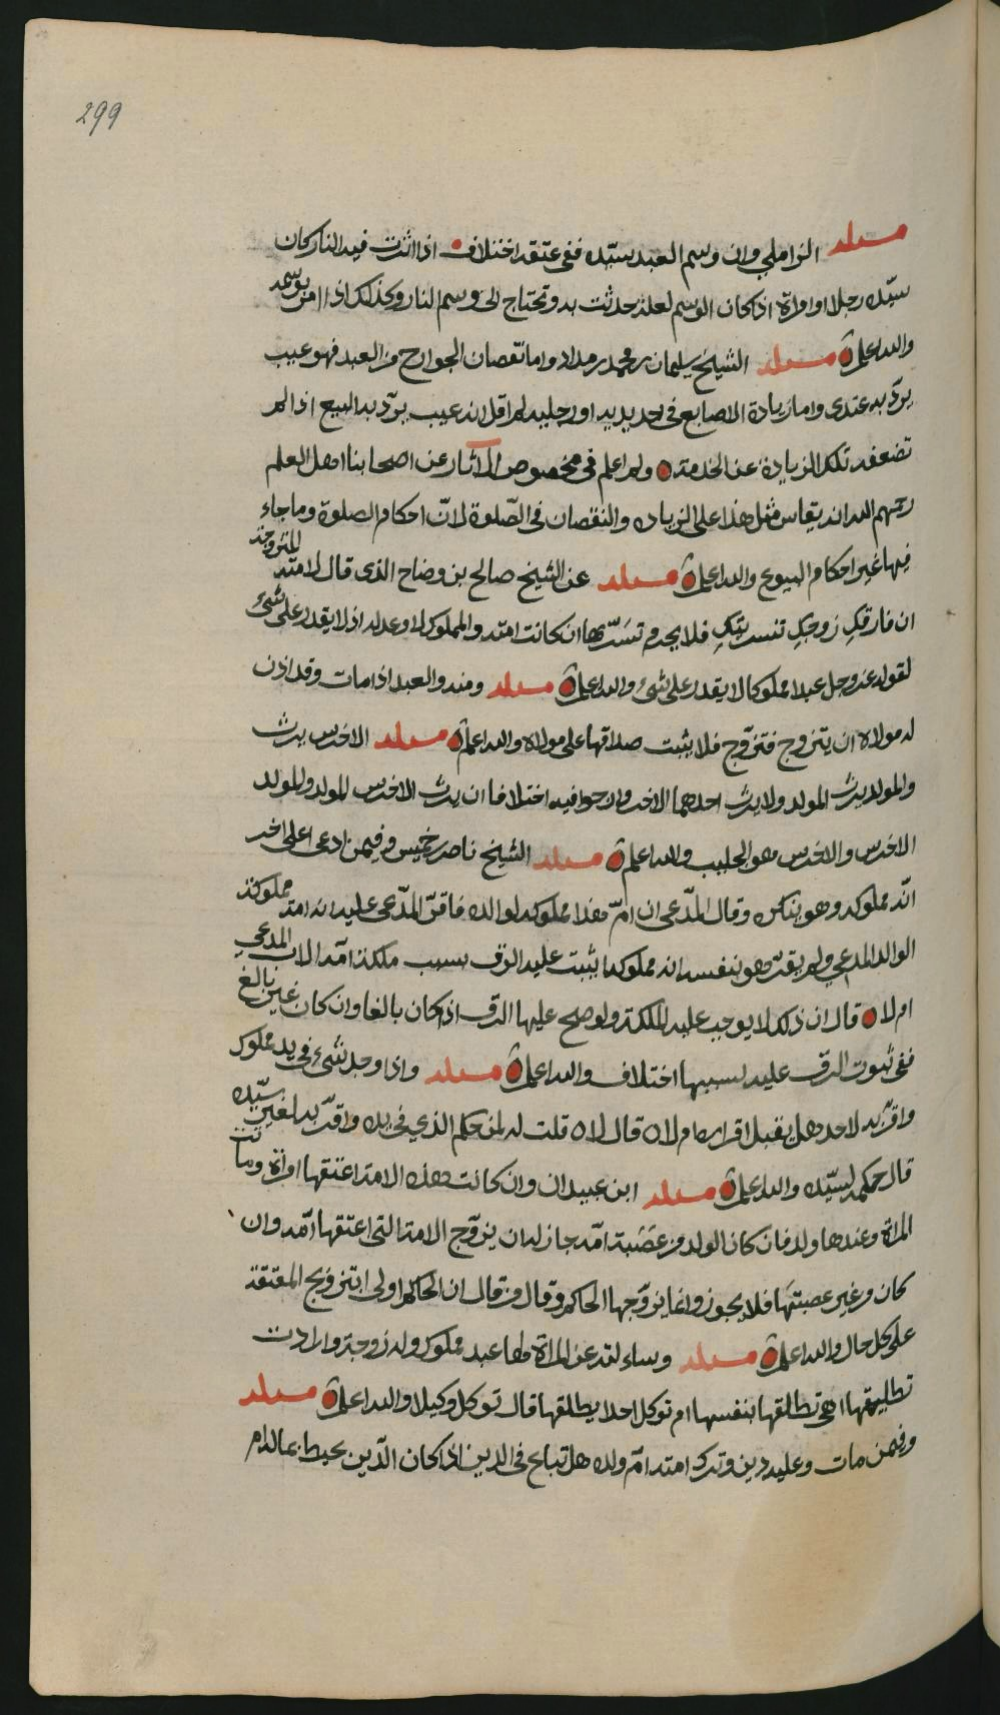 299
مسئلة الزاملي وان وسم العبد سيّده ففي عتقه اختلاف اذا اثرت فيه النار كان
سيّده رجلا او امراة اذا كان الوسم لعلة حدثت به وتحتاج الى وسم النار وكذلك اذا امر من يوسمه
والله اعلم مسئلة الشيخ سليمان بن محمد بن مداد واما نقصان الجوارح من العبد فهو عيب
يردّ به عندي واما زيادة الاصابع في احد يديه او رجليه لم اقل انه عيب يردّ به البيع اذا لم
تضعفه تلك الزيادة عن الخدمة ولم اعلم في مخصوص الآثار عن اصحابنا اهل العلم
رحمهم الله انه يقاس مثل هذا على الزياده والنقصان في الصّلوة لانّ احكام الصلوة وما جاء
فيها غير احكام البيوع والله اعلم مسئلة عن الشيخ صالح بن وضاح الذى قال لامته المتزوجة
ان فارقكِ زوجكِ تسريتكِ فلا يحرم تسرّها ان كانت امته والمملوك لا وعد له اذ لا يقدر على شىء
لقوله عز وجل عبدا مملوكا لا يقدر على شىء والله اعلم مسئلة ومنه والعبد اذا مات وقد اذن
له مولاه ان يتزوج فتزوّج فلا يثبت صداقها على مولاه والله اعلم مسئلة الاخرس يرث
والمولد يرث المولد ولا يرث احدهما الاخر وارجوا فيه اختلافا ان يرث الاخرس المولد والمولد
الاخرس والاخرس هو الجليب والله اعلم مسئلة الشيخ ناصر بن خميس وفيمن ادعى على اخر
انّه مملوكه وهو ينكر وقال المدّعي ان امّ هذا مملوكه لوالده فاقرّ المدّعى عليه ان امه مملوكة
الوالد المدعي ولم يقرّ هو بنفسه انه مملوكه ايثبت عليه الرق بسبب ملكة امّه الاب المدعي
ام لا قال ان ذلك لا يوجب عليه الملكة ولو صح عليها الرق اذا كان بالغا وان كان غير بالغ
ففي ثبوت الرق عليه بسببها اختلاف والله اعلم مسئلة واذا وجد شىء في يد مملوك
واقرّ به لاحد هل يقبل اقراره ام لا قال لا قلت له لمن حكم الذي في يده واقرّ به لغير سيّده
قال حكمه لسيّده والله اعلم مسئلة ابن عبيدان وان كانت هذه الامة اعتقها امراة وماتت
المراة وعندها ولد فان كان الولد من عصبة امّه جاز له ان يزوّج الامة التي اعتقها امّه وان
كان من غير عصبتها فلا يجوز وانما يزوّجها الحاكم وقال من قال ان الحاكم اولى بتزويج المعتقة
على كل حال والله اعلم مسئلة وساءلته عن المراة لها عبد مملوك وله زوجة وارادت
تطليقها اهي تطلقها بنفسها ام توكل احدا يطلقها قال توكل وكيلا والله اعلم مسئلة
وفيمن مات وعليه دين وترك امته امّ ولده هل تباع في الدين اذا كان الدّين يحيط بماله ام